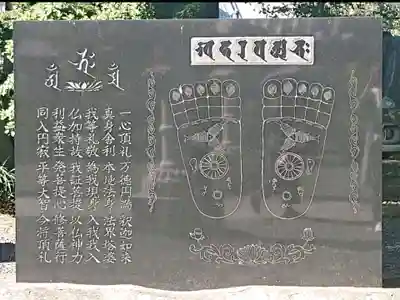 一心頂礼　万徳円満　釈迦如来
真身舎利　本地法身　法界塔婆
我等礼敬　為我現身　入我我入
仏加持故　我証菩提　以仏神力
利益衆生　発菩提心　修菩薩行
同入円寂　平等大智　今将頂礼